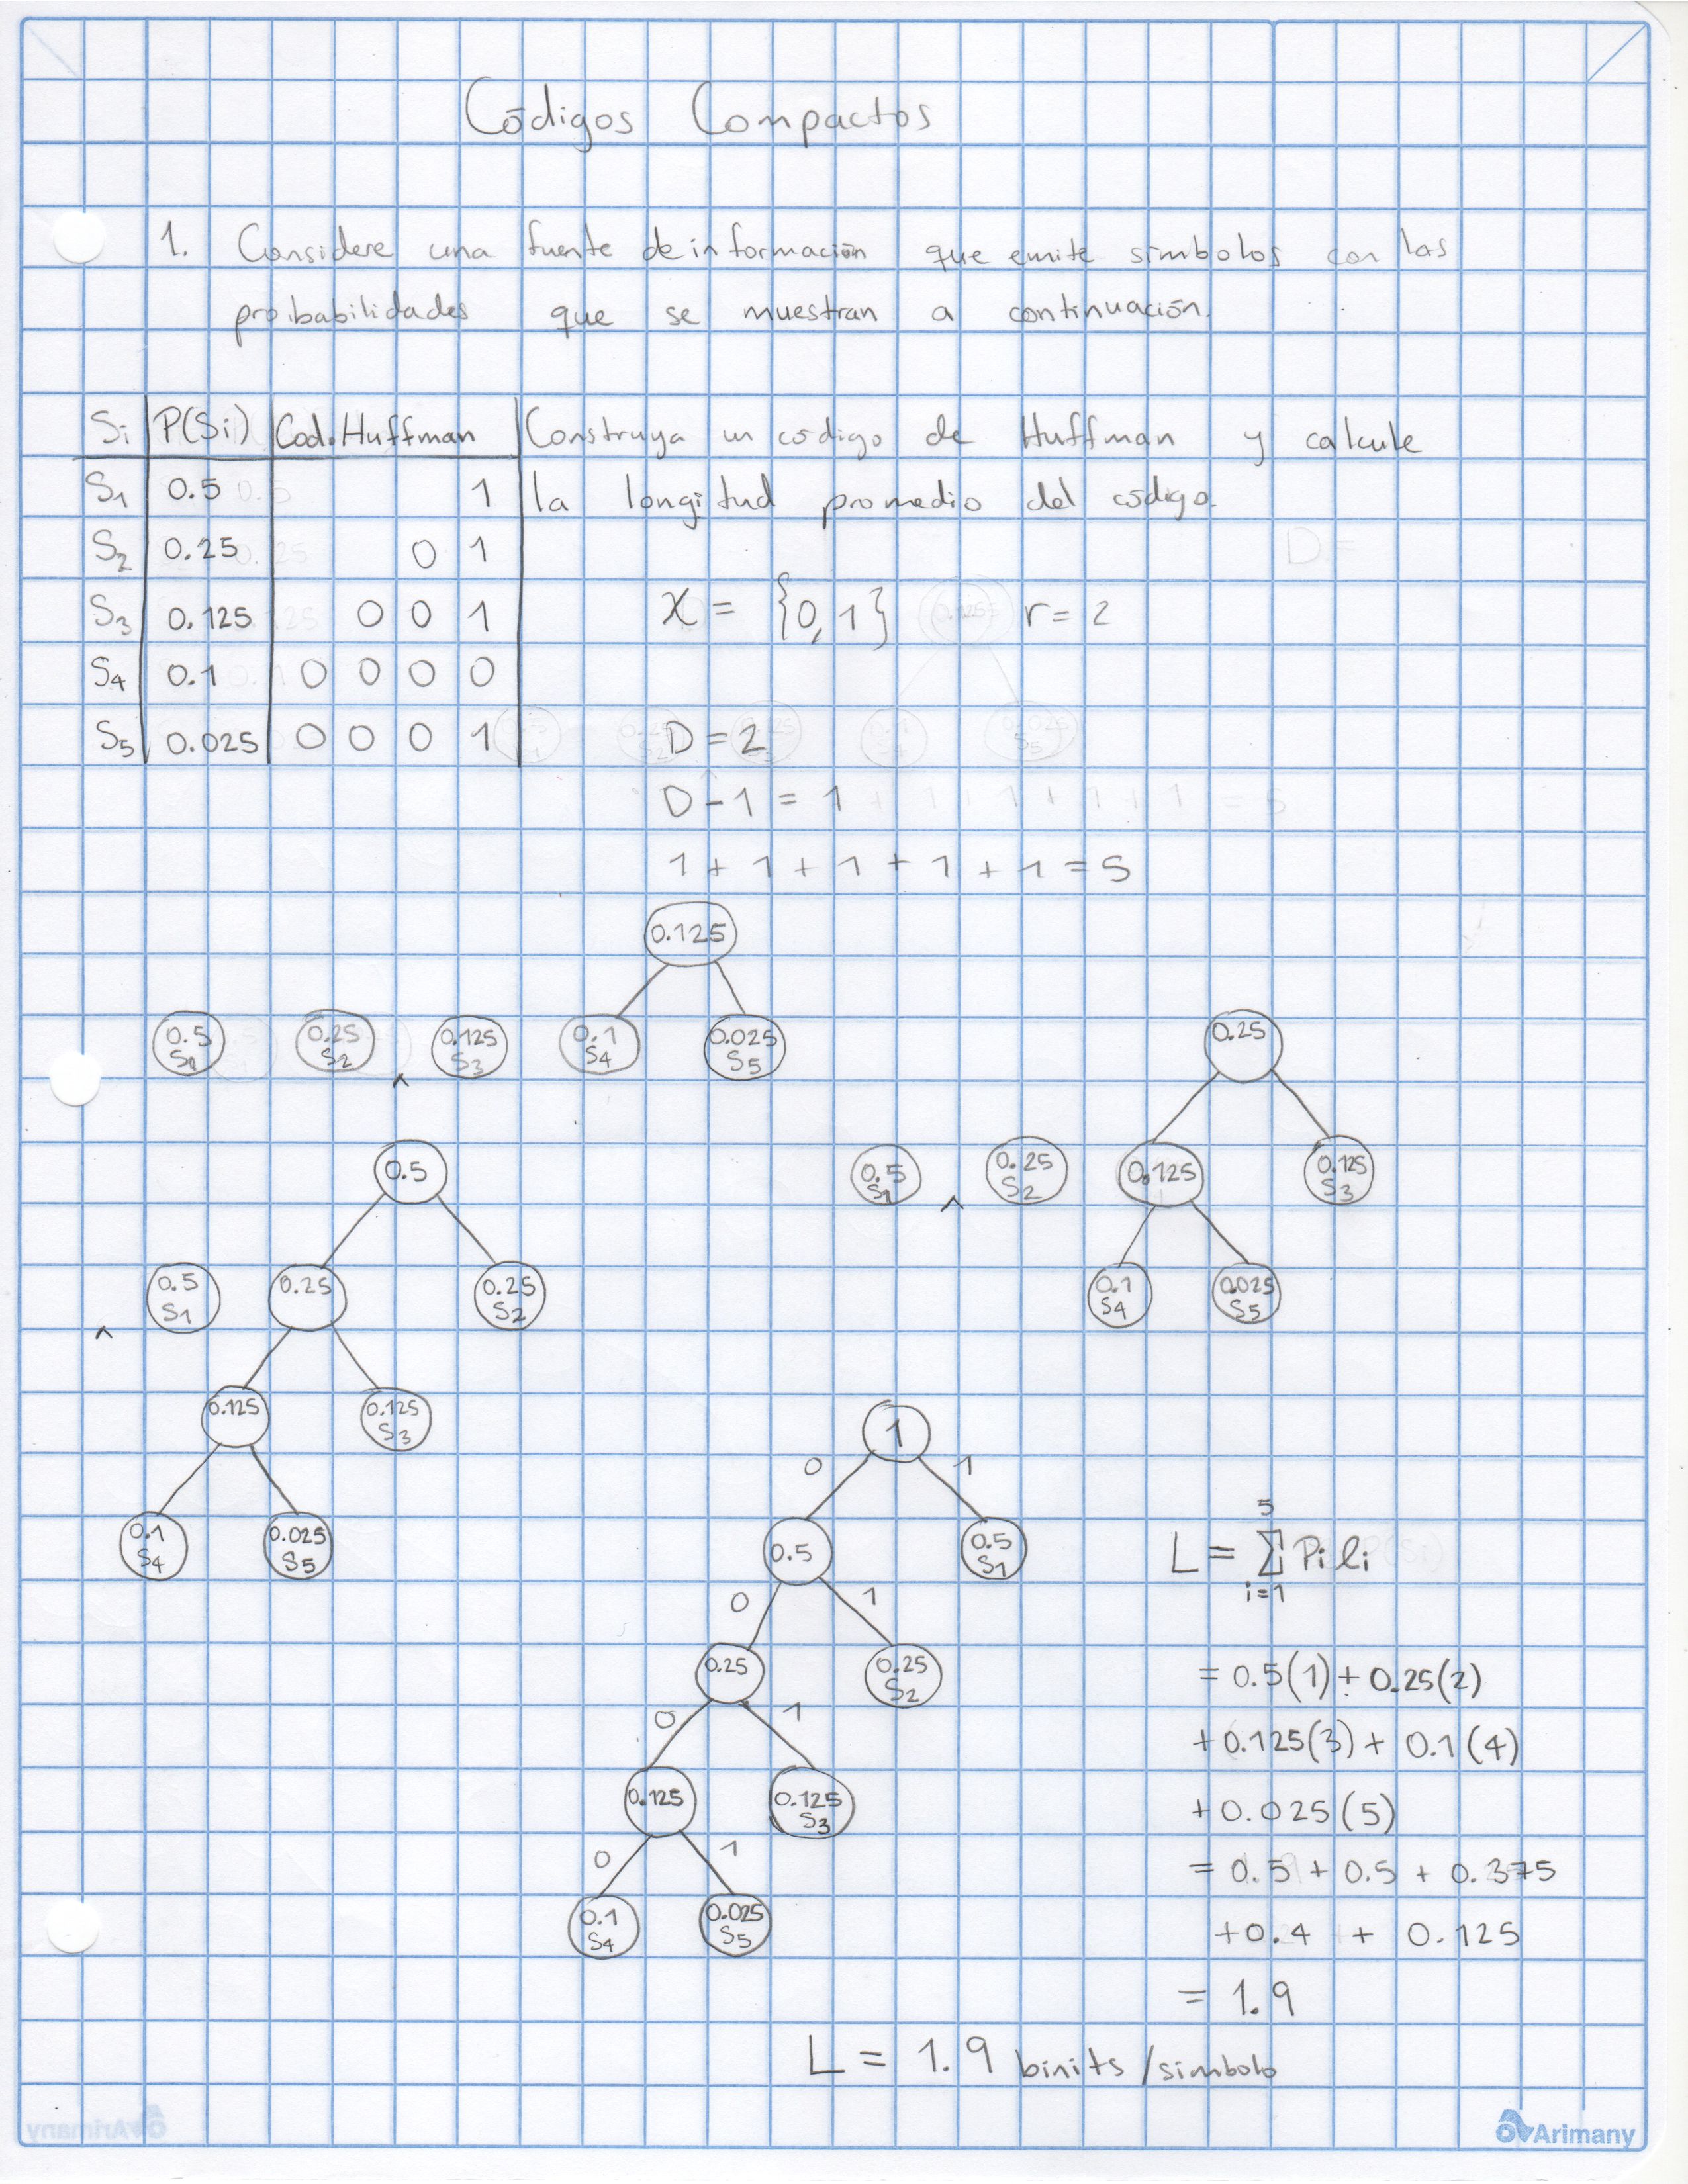 Códigos Compactos
1. Considere una fuente de información que emite símbolos con las
probabilidades que se muestran a continuación.
Si P(Si) Cod. Huffman Construya un código de Huffman y calcule
S1 0.5 1 la longitud promedio del código.
S2 0.25 0 1
S3 0.125 0 0 1 X = {0,1} r = 2
S4 0.1 0 0 0 0
S5 0.025 0 0 0 1 D = 2
D - 1 = 1
1 + 1 + 1 + 1 + 1 = 5
0.125
0.5 S1 0.25 S2 0.125 S3 0.1 S4 0.025 S5
0.25
0.5 S1 0.25 S2 0.125 0.125 S3
0.1 S4 0.025 S5
0.5
0.5 S1 0.25 0.25 S2
0.125 0.125 S3
0.1 S4 0.025 S5
1
0 1
0.5 0.5 S1
0 1
0.25 0.25 S2
0 1
0.125 0.125 S3
0 1
0.1 S4 0.025 S5
L = 5 Σ i=1 Pi li
= 0.5(1) + 0.25(2)
+ 0.125(3) + 0.1(4)
+ 0.025(5)
= 0.5 + 0.5 + 0.375
+ 0.4 + 0.125
= 1.9
L = 1.9 binits/símbolo
Arimany